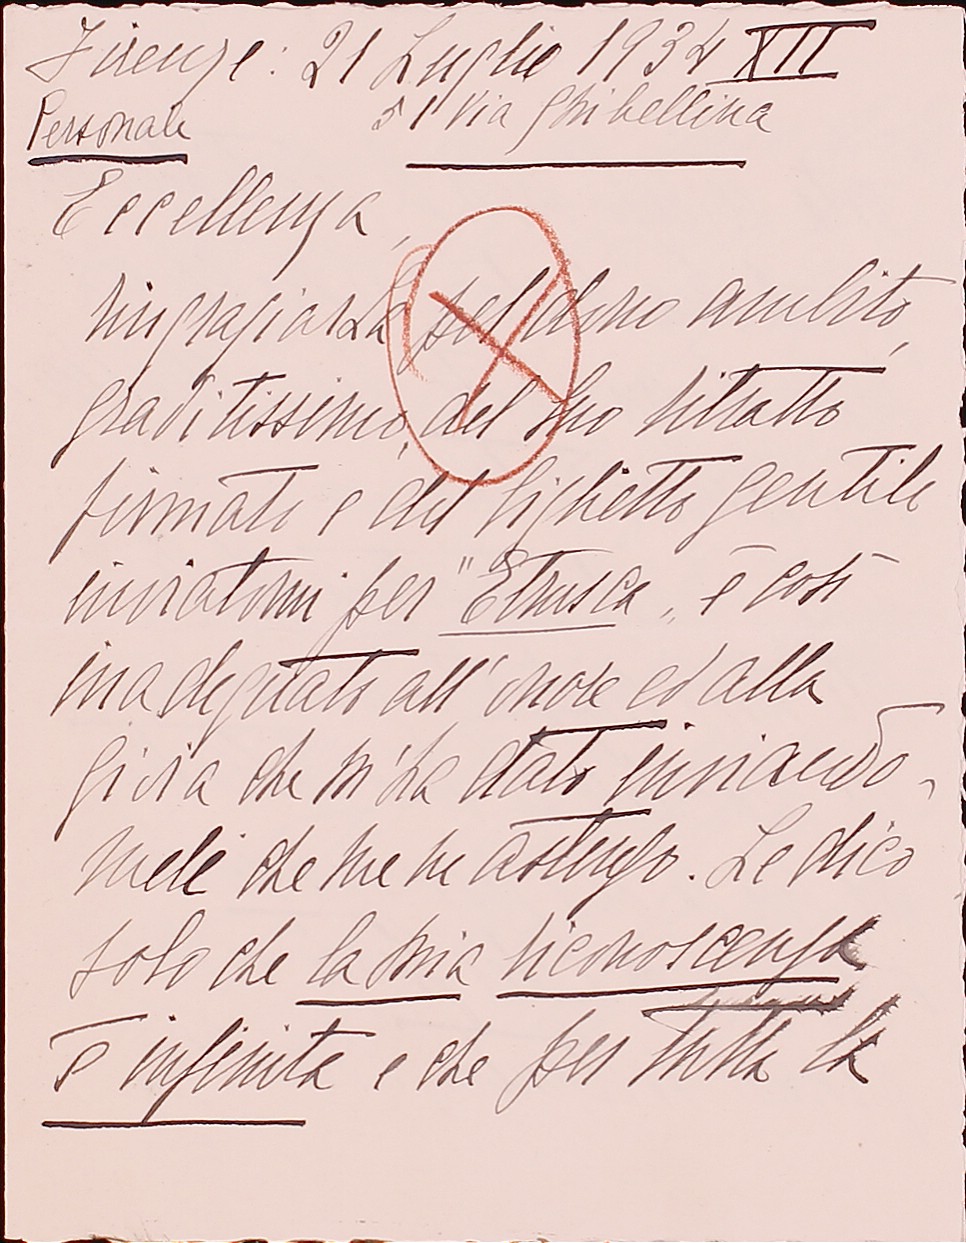 Firenze: 21 Luglio 1934 XII
Personale 51 Via Ghibellina
Eccellenza,
ringraziarLa del dono ambìto,
graditissimo, del Suo ritratto
firmato e del biglietto gentile
inviatomi per "Etrusca", è così
inadeguato all'onore ed alla
gioia che m'ha dato inviando-
meli che me ne astengo. Le dico
solo che la mia riconoscenza
è infinita e che per tutta la